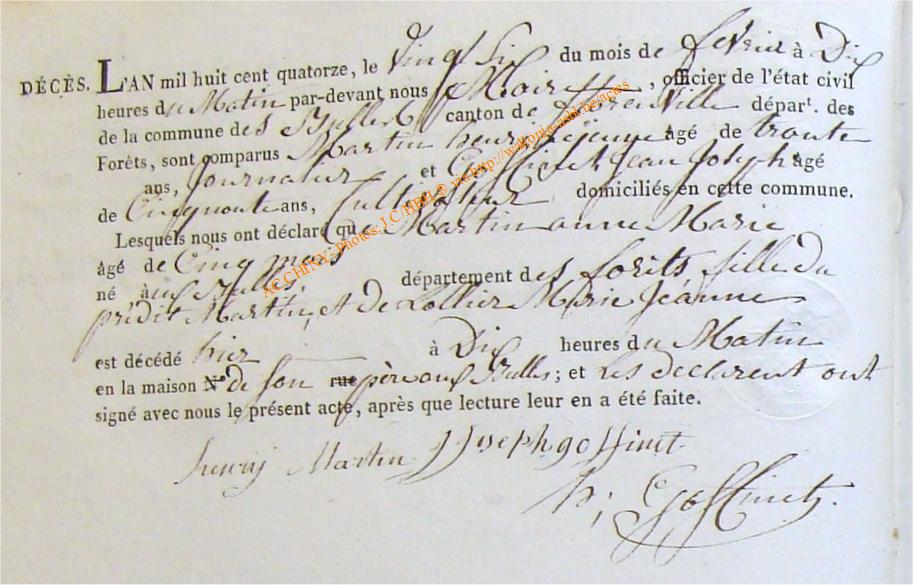 DÉCÈS. L'AN mil huit cent quatorze, le vingt Six du mois de fevrier à Dix
heures du Matin par-devant nous Maire, officier de l'état civil
de la commune des Bulles canton de florenville départ. des
Forêts, sont comparus Martin henri Lejeune âgé de trente
ans, Journalier et Goffinet Jean Joseph âgé
de Cinquante ans, Cultivateur domiciliés en cette commune.
Lesquels nous ont déclaré que Martin anne Marie
âgé de Cinq mois
né à aux Bulles, département des forêts, fille du
prédit Martin, et de Lollier Marie Jeanne
est décédé hier à Dix heures du Matin
en la maison N° de Son rue père aux Bulles; et Les déclarent ont
signé avec nous le présent acte, après que lecture leur en a été faite.
henry Martin J Joseph goffinet
h; Goffinet.
ACCHINY- Photos J C/HBH © via http://wallonia-asbl.be/signes